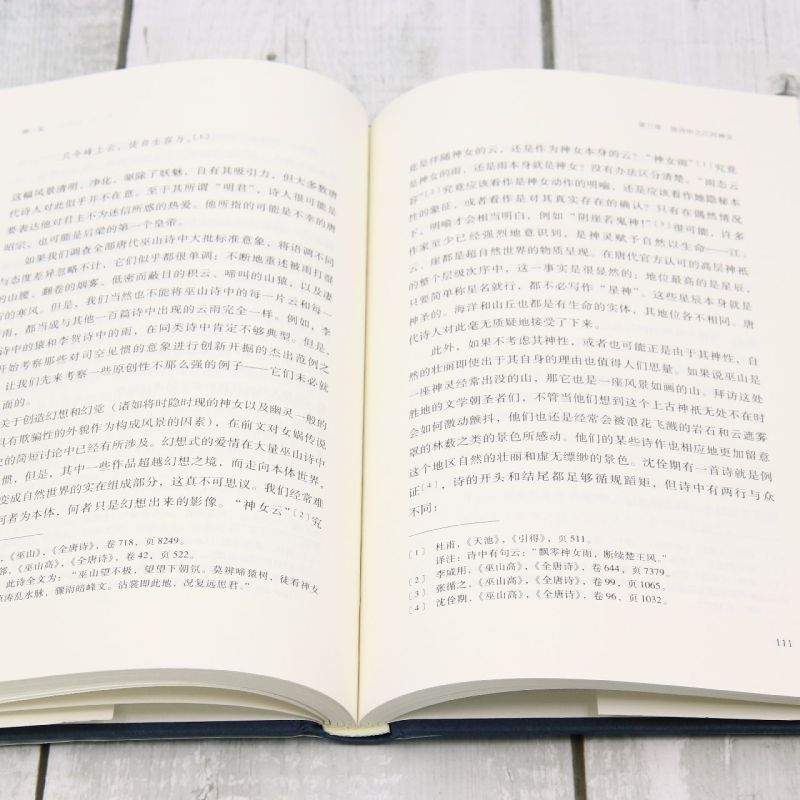 神 女
只今峰上云，徒自生容与。[1]
这幅风景清明、净化，驱除了妖魅，自有其吸引力，但大多数唐
代诗人对此似乎并不在意。至于其所谓“明君”，诗人很可能是
要表达他对君主不为迷信所惑的热爱。他所指的可能是不幸的唐
昭宗，也可能是后梁的第一个皇帝。
如果我们调查全部唐代巫山诗中大批标准意象，将语调不同
与态度差异忽略不计，它们似乎都很单调：不断地重述被雨打湿
的山腰、翻卷的烟雾、低密而蔽目的积云、啼叫的山猿，以及凄
的寒风。但是，我们当然也不能将巫山诗中的每一片云和每一
雨，都当成与其他一百篇诗中出现的云雨完全一样。例如，李
诗中的猿和李贺诗中的雨，在同类诗中肯定不够典型。但是，
开始考察那些对司空见惯的意象进行创新开掘的杰出范例之
让我们先来考察一些原创性不那么强的例子——它们未必就
面的。
关于创造幻想和幻觉（诸如将时隐时现的神女以及幽灵一般的
具有欺骗性的外貌作为构成风景的因素），在前文对女娲传说
史的简短讨论中已经有所涉及。幻想式的爱情在大量巫山诗中
惯，但是，其中一些作品超越幻想之境，而走向本体世界，
变成自然世界的实在组成部分，这真不可思议。我们经常难
何者为本体，何者只是幻想出来的影像。“神女云”[2]究
《巫山》，《全唐诗》，卷 718，页 8249。
《巫山高》，《全唐诗》，卷 42，页 522。
此诗全文为：“巫山望不极，望望下朝氛。莫辨啼猿树，徒看神女
涛乱水脉，骤雨暗峰文。沾裳即此地，况复远思君。”
第三章 唐诗中之江河神女
竟是伴随神女的云，还是作为神女本身的云？“神女雨”[1]究竟
是神女的雨，还是雨本身就是神女？没有办法区分清楚。“雨态云
容”[2]究竟应该看作是神女动作的明喻，还是应该看作她隐秘本
性的象征，或者看作是对其真实存在的确认？只有在偶然情况
下，明喻才会相当明白，例如“阴崖若鬼神！”[3]很可能，许多
作家至少已经强烈地意识到，是神灵赋予自然以生命——江、
云、崖都是超自然世界的物质呈现。在唐代官方认可的高层神祇
的整个层级次序中，这一事实是很显然的：地位最高的是星辰，
只要简单称星名就行，都不必写作“星神”。这些星辰本身就是
神圣的。海洋和山丘也都是有生命的实体，其地位各不相同。唐
代诗人对此毫无质疑地接受了下来。
此外，如果不考虑其神性，或者也可能正是由于其神性，自
然的壮丽即使出于其自身的理由也值得人们思量。如果说巫山是
一座神灵经常出没的山，那它也是一座风景如画的山。拜访这处
胜地的文学朝圣者们，不管当他们想到这个上古神祇无处不在时
会如何激动颤抖，他们也还是经常会被浪花飞溅的岩石和云遮雾
罩的林薮之类的景色所感动。他们的某些诗作也相应地更加留意
这个地区自然的壮丽和虚无缥缈的景色。沈佺期有一首诗就是例
证[4]，诗的开头和结尾都足够循规蹈矩，但诗中有两行与众
不同：
[1] 杜甫，《天池》，《引得》，页 511。
译注：诗中有句云：“飘零神女雨，断续楚王风。”
[2] 李咸用，《巫山高》，《全唐诗》，卷 644，页 7379。
[3] 张循之，《巫山高》，《全唐诗》，卷 99，页 1065。
[4] 沈佺期，《巫山高》，《全唐诗》，卷 96，页 1032。
111